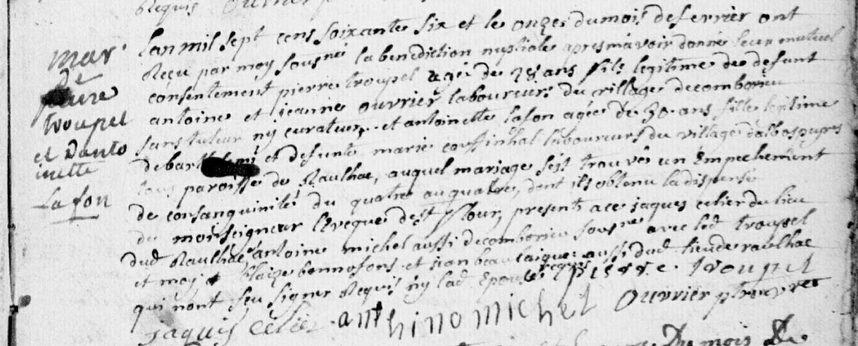 Requis ouvrier
mar.
de
pierre
troupel
et D'anto
inette
Lafon
Lan mil sept cens soixante six et le onze du mois de fevrier ont
Reçu par moy sousné la benediction nuptiale apres m'avoir donné leur mutuel
consentement pierre troupel agé de 28 ans fils legitime de defunt
antoine et jeanne ouvrier laboureurs du village de comborieu
sans tuteur ny curateur et antoinette lafon agée de 30 ans fille legitime
de bart et defunte marie couffinhal laboureurs du village d'albospeyres
tous paroisse de Raulhac, auquel mariage s'est trouvé un Empechement
de consanguinité du quatre au quatre, dont ils obtenu la dispense
de monseigneur l'eveque de st flour, presents a ce jaques celier du lieu
dud Raulhac antoine michel aussi de comborieu sousnés avec led troupel
et moy blaize bonnafons et jean aussi dud lieu de raulhac
qui n'ont seu signer Requis ny lad Epouse pierre troupel
jaques celier anthino michel ouvrier ptre
du mois de